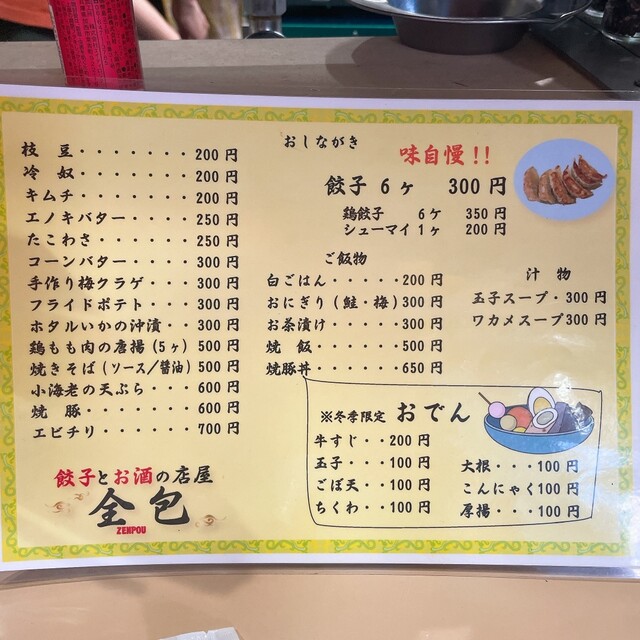 枝豆・・・・・・・200円
冷奴・・・・・・・200円
キムチ・・・・・・200円
エノキバター・・・・250円
たこわさ・・・・・250円
コーンバター・・・・300円
手作り梅クラゲ・・・300円
フライドポテト・・・300円
ホタルいかの沖漬・・300円
鶏もも肉の唐揚(5ヶ)500円
焼きそば(ソース／醤油)500円
小海老の天ぷら・・・600円
焼豚・・・・・・・600円
エビチリ・・・・・・700円
餃子とお酒の店屋
全包
ZENPOU
おしながき
味自慢!!
餃子 6ヶ 300円
鶏餃子 6ケ 350円
シューマイ1ヶ 200円
ご飯物
白ごはん・・・・・200円
おにぎり(鮭・梅)300円
お茶漬け・・・・・300円
焼飯・・・・・・500円
焼豚丼・・・・・・650円
汁物
玉子スープ・300円
ワカメスープ300円
※冬季限定 おでん
牛すじ・・200円
玉子・・・100円
ごぼ天・・100円
ちくわ・・100円
大根・・・100円
こんにゃく100円
厚揚・・・100円